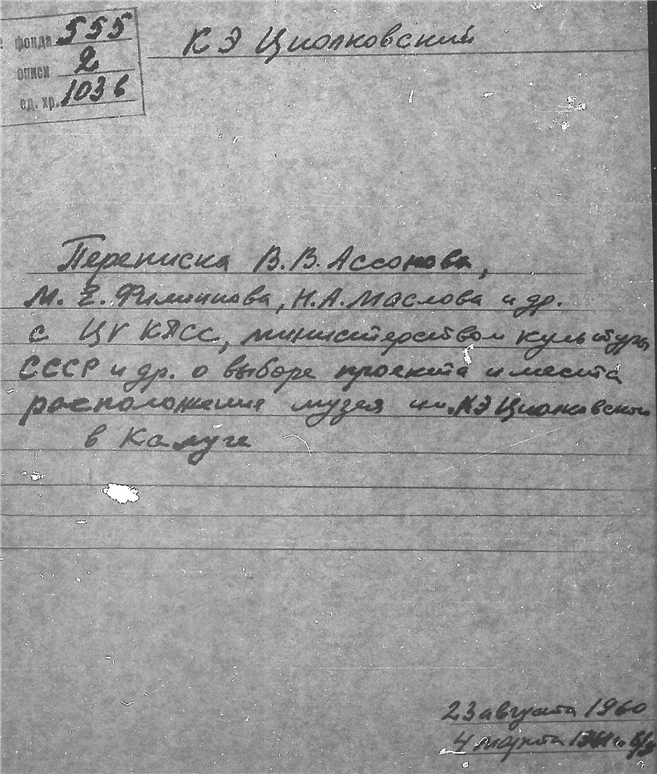 фонда 555
описи 2
ед. хр. 103 в
К Э Циолковский
Переписка В.В. Ассонова,
М. Е. Филиппова, Н.А. Маслова и др.
с ЦК КПСС, министерством культуры
СССР и др. о выборе проекта и места
расположения музея им. КЭ Циолковского
в Калуге
23 августа 1960
4 марта